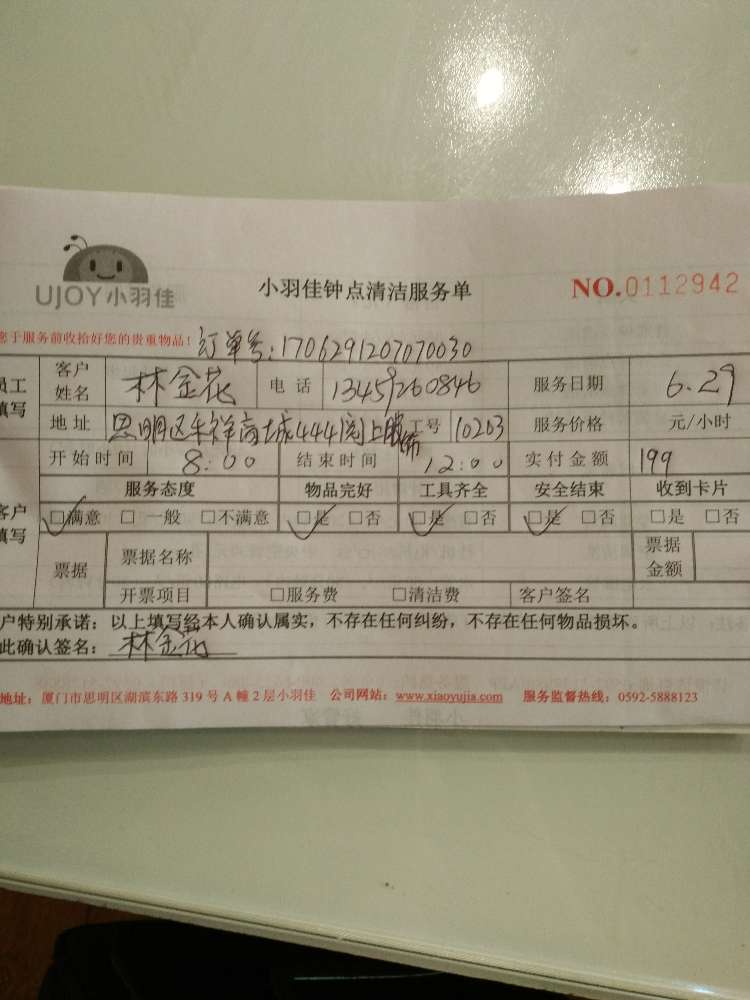 UJOY小羽佳
小羽佳钟点清洁服务单
NO.0112942
您于服务前收拾好您的贵重物品！ 订单号:1706291207070030
员工填写
客户姓名 林金花 电话 13459260846 服务日期 6.29
地址 思明区禾祥商城444阁上服饰 工号 10203 服务价格 元/小时
开始时间 8:00 结束时间 12:00 实付金额 199
客户填写
服务态度 物品完好 工具齐全 安全结束 收到卡片
□满意 □一般 □不满意 □是 □否 □是 □否 □是 □否 □是 □否
票据 票据名称 票据金额
开票项目 □服务费 □清洁费 客户签名
户特别承诺：以上填写经本人确认属实，不存在任何纠纷，不存在任何物品损坏。
此确认签名：林金花
地址：厦门市思明区湖滨东路319号A幢2层小羽佳 公司网站：www.xiaoyujia.com 服务监督热线：0592-5888123